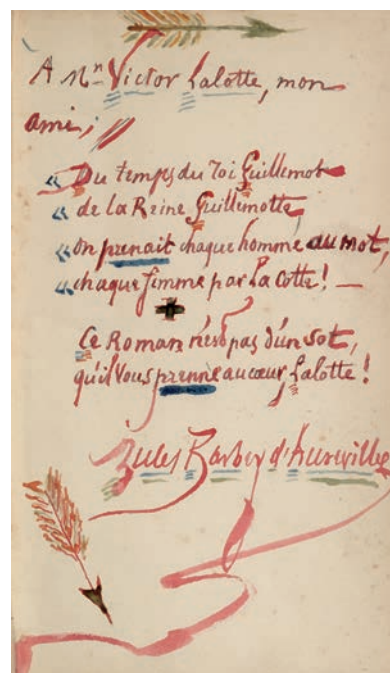 A Mr Victor Lalotte, mon
ami,
« Du temps du roi Guillemot
« de la Reine Guillemotte,
« on prenait chaque homme au mot,
« chaque femme par la cotte ! —
Ce Roman n'est pas d'un sot,
qu'il vous prenne au cœur, Lalotte !
Jules Barbey d'Aurevilly